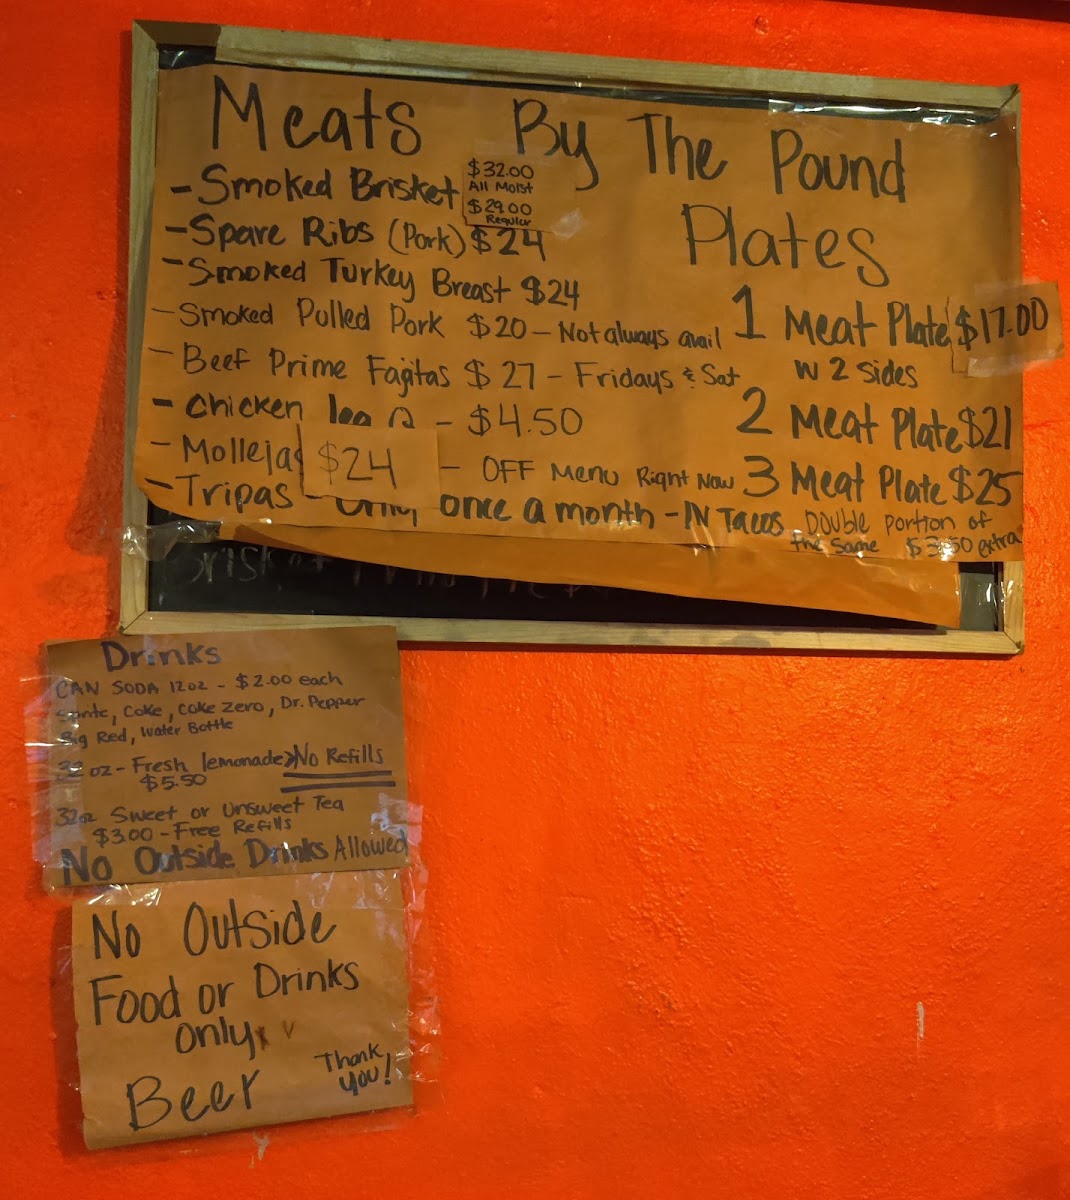 Meats By The Pound
- Smoked Brisket
$32.00
All Moist
$29.00
Regular
- Spare Ribs (Pork) $24
- Smoked Turkey Breast $24
- Smoked Pulled Pork $20 - Not always avail
- Beef Prime Fajitas $27 - Fridays & Sat
- Chicken leg Q - $4.50
- Mollejas $24 - OFF Menu Right Now
- Tripas - Only once a month - IN Tacos
Plates
1 Meat Plate $17.00
w 2 sides
2 Meat Plate $21
3 Meat Plate $25
Double portion of
the same $3.50 extra
Drinks
CAN SODA 12oz - $2.00 each
Coke, Coke Zero, Dr. Pepper
Big Red, Water Bottle
32 oz - Fresh lemonade > No Refills
$5.50
32oz Sweet or Unsweet Tea
$3.00 - Free Refills
No Outside Drinks Allowed
No Outside
Food or Drinks
only
Beer
Thank
you!